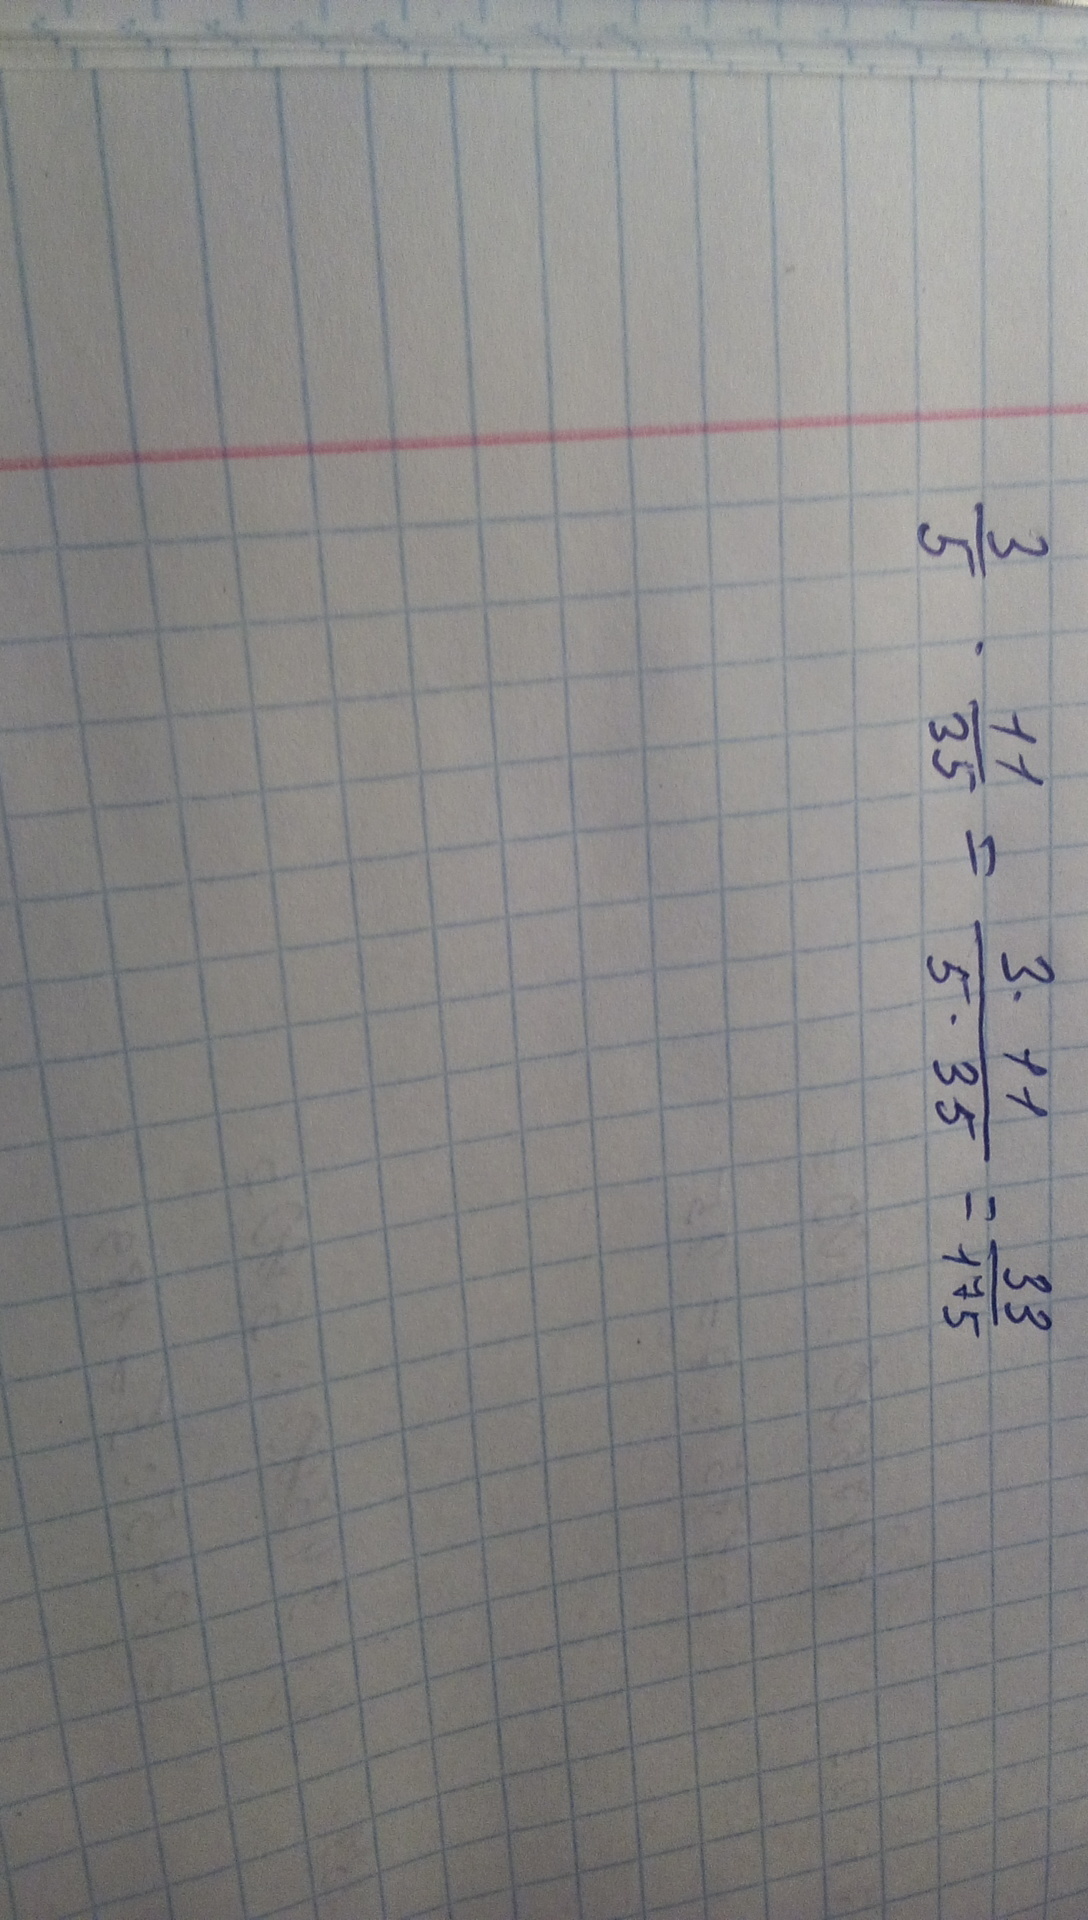 3/5 · 11/35 = 3·11/5·35 = 33/175